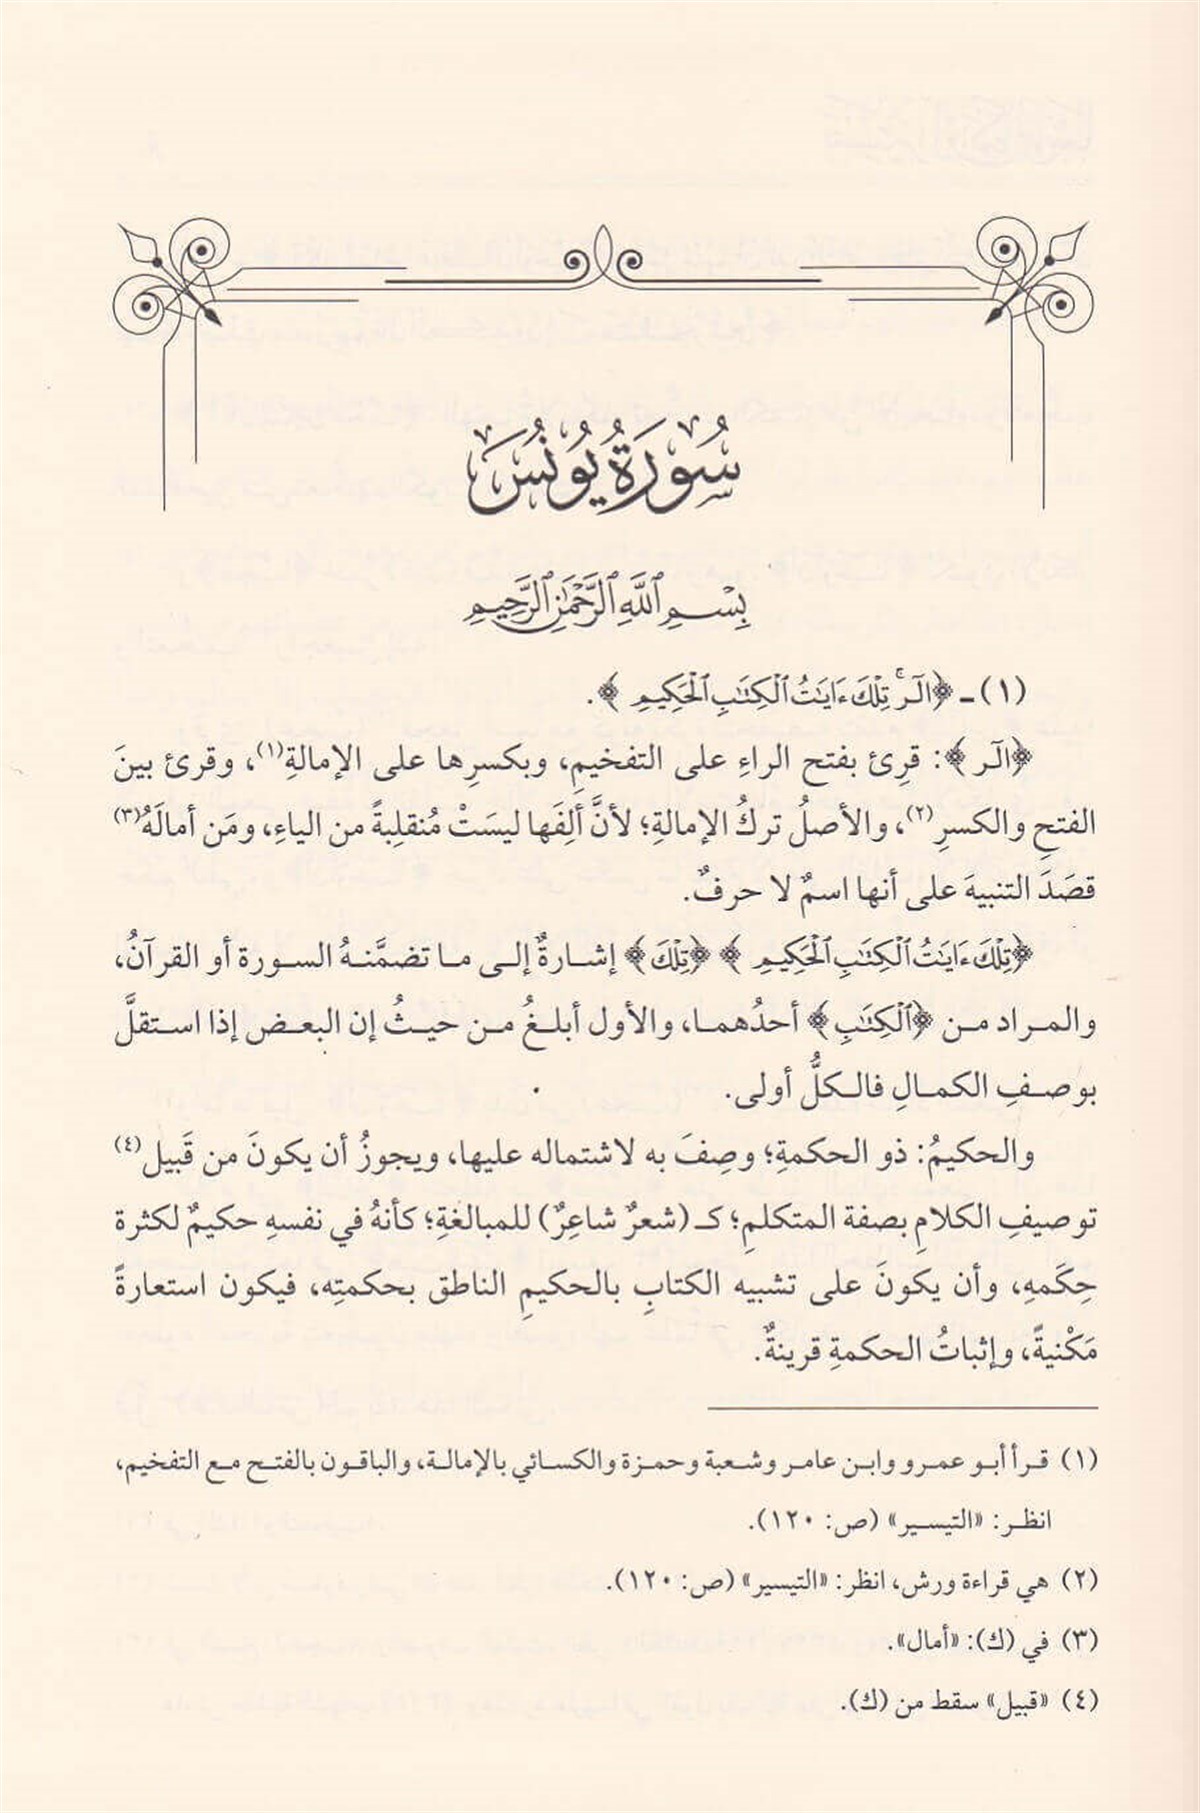 سُورَةُ يُونُسَ
بِسْمِ ٱللَّهِ ٱلرَّحْمَٰنِ ٱلرَّحِيمِ
(١) ـ ﴿الٓرۚ تِلْكَ ءَايَٰتُ ٱلْكِتَٰبِ ٱلْحَكِيمِ﴾.
﴿الٓر﴾: قرِئ بفتح الراءِ على التفخيمِ، وبكسرِها على الإمالةِ(١)، وقرئ بينَ
الفتحِ والكسرِ(٢)، والأصلُ تركُ الإمالةِ؛ لأنَّ ألِفَها ليسَتْ مُنقلِبةً من الياءِ، ومَن أمالَهُ(٣)
قصَدَ التنبيهَ على أنها اسمٌ لا حرفٌ.
﴿تِلْكَ ءَايَٰتُ ٱلْكِتَٰبِ ٱلْحَكِيمِ﴾ ﴿تِلْكَ﴾ إشارةٌ إلى ما تضمَّنهُ السورة أو القرآنُ،
والمراد من ﴿ٱلْكِتَٰبِ﴾ أحدُهما، والأول أبلغُ من حيثُ إن البعض إذا استقلَّ
بوصفِ الكمالِ فالكلُّ أولى.
والحكيمُ: ذو الحكمةِ؛ وصِفَ به لاشتماله عليها، ويجوزُ أن يكونَ من قَبيل(٤)
توصيفِ الكلامِ بصفة المتكلمِ؛ كـ (شعرٌ شاعِرٌ) للمبالغةِ؛ كأنهُ في نفسهِ حكيمٌ لكثرة
حِكَمهِ، وأن يكونَ على تشبيه الكتابِ بالحكيمِ الناطق بحكمتِه، فيكون استعارةً
مَكْنيةً، وإثباتُ الحكمةِ قرينةٌ.
(١) قرأ أبو عمرو وابن عامر وشعبة وحمزة والكسائي بالإمالة، والباقون بالفتح مع التفخيم،
انظر: «التيسير» (ص: ١٢٠).
(٢) هي قراءة ورش، انظر: «التيسير» (ص: ١٢٠).
(٣) في (ك): «أمال».
(٤) «قبيل» سقط من (ك).